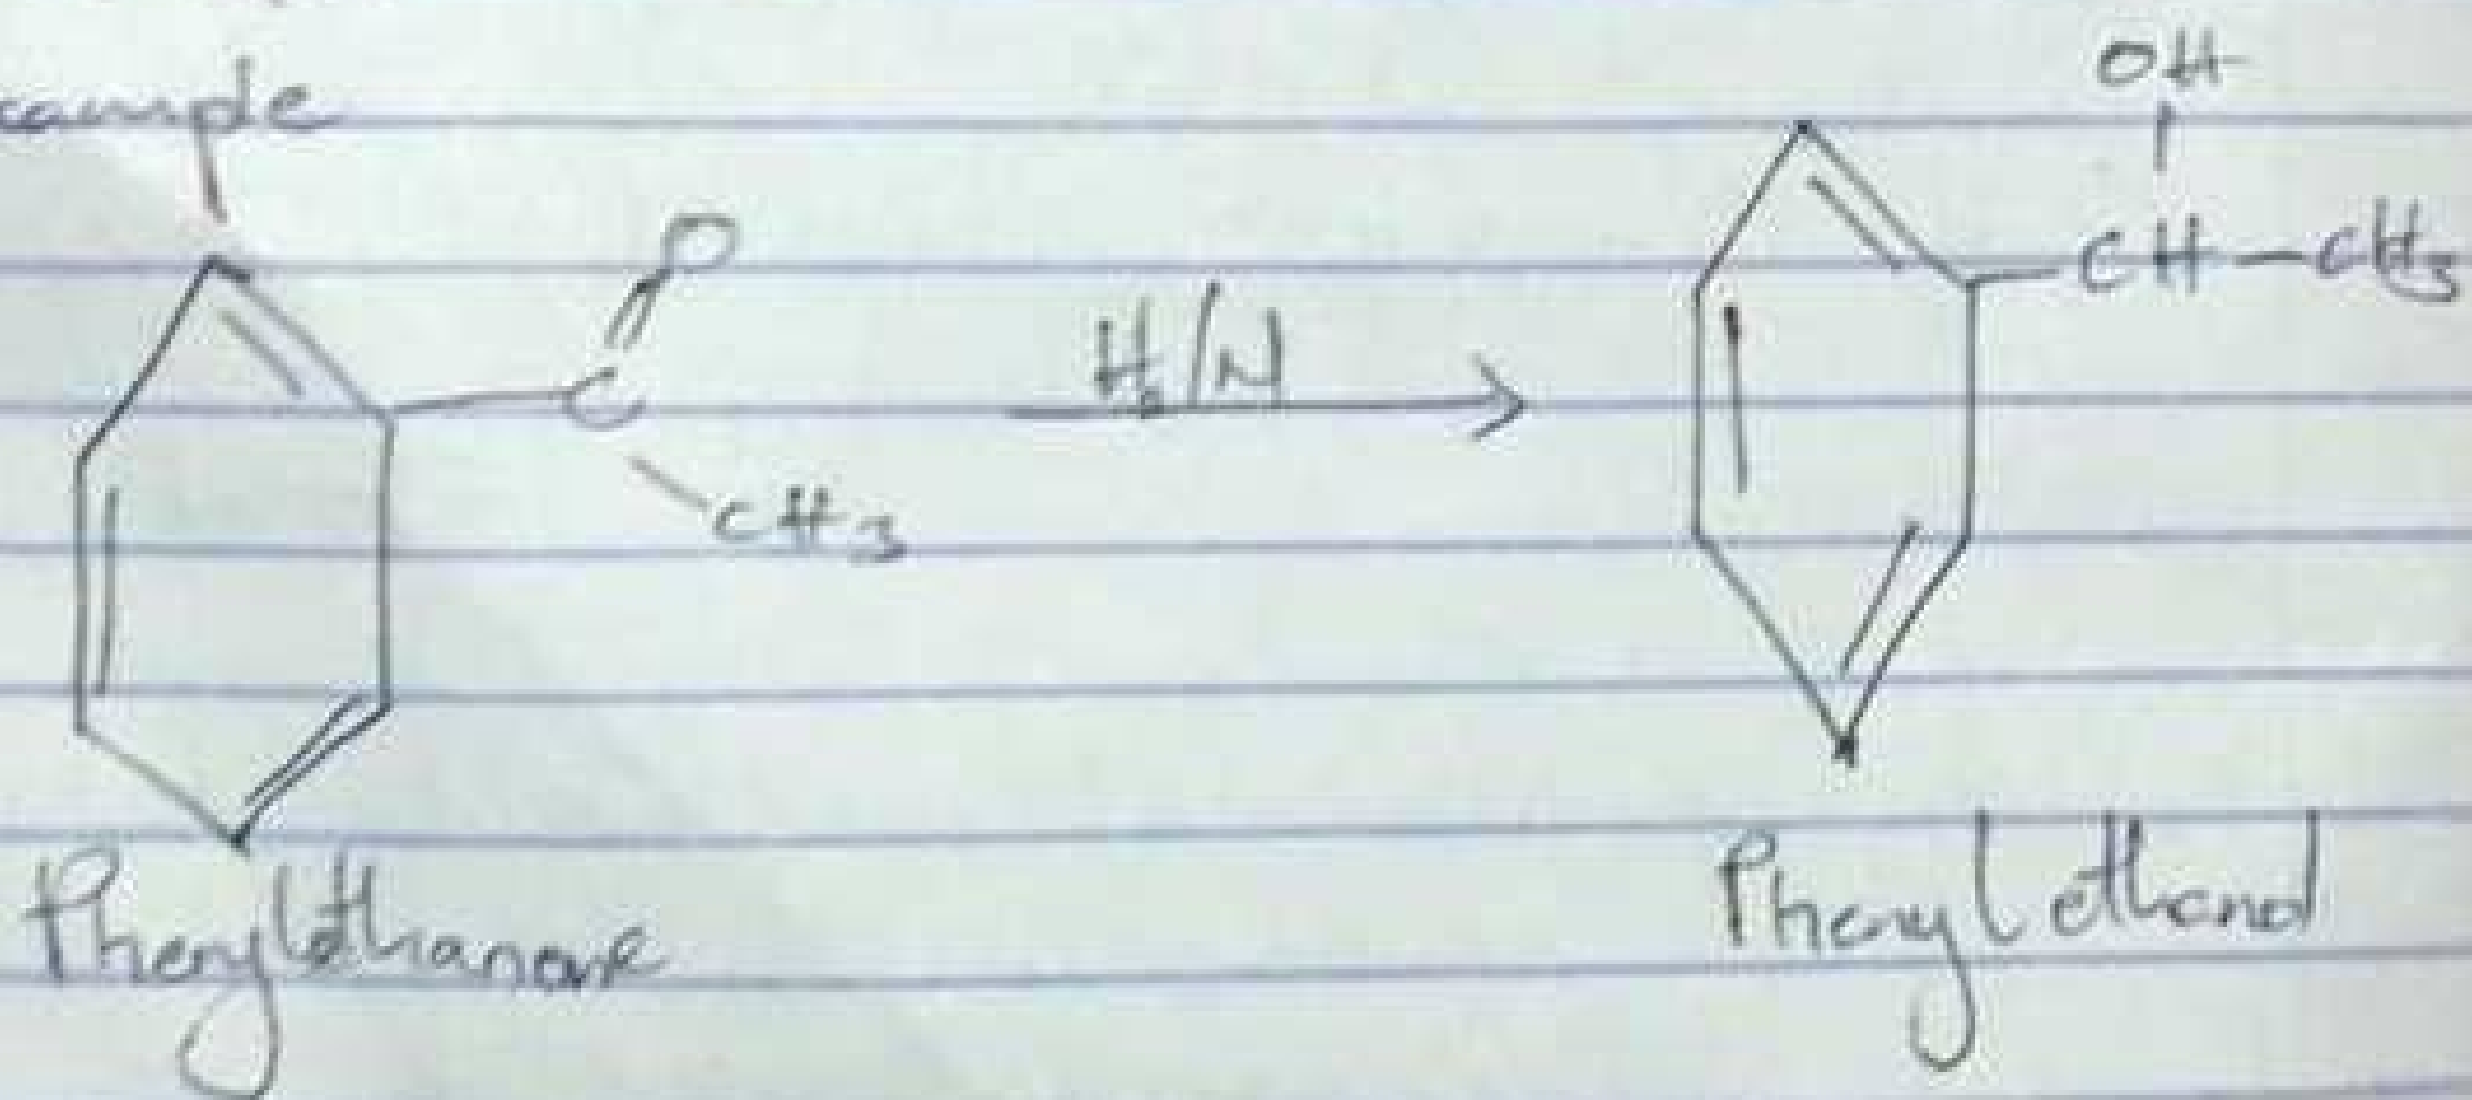 xample
OH
O
CH-CH3
H2/N
C
CH3
Phenylethanone
Phenyl ethanol